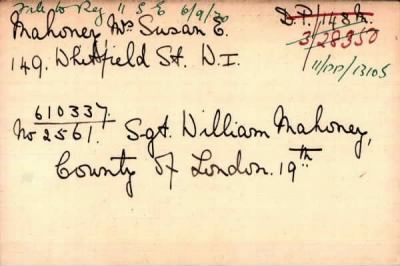 File to Reg 11 S E 6/9/20
Mahoney Mrs Susan E.
D.P./148/M.
3/28350
149. Whitfield St. W.I.
11/DP/13105
610337.
No 2561. Sgt. William Mahoney,
County of London. 19th